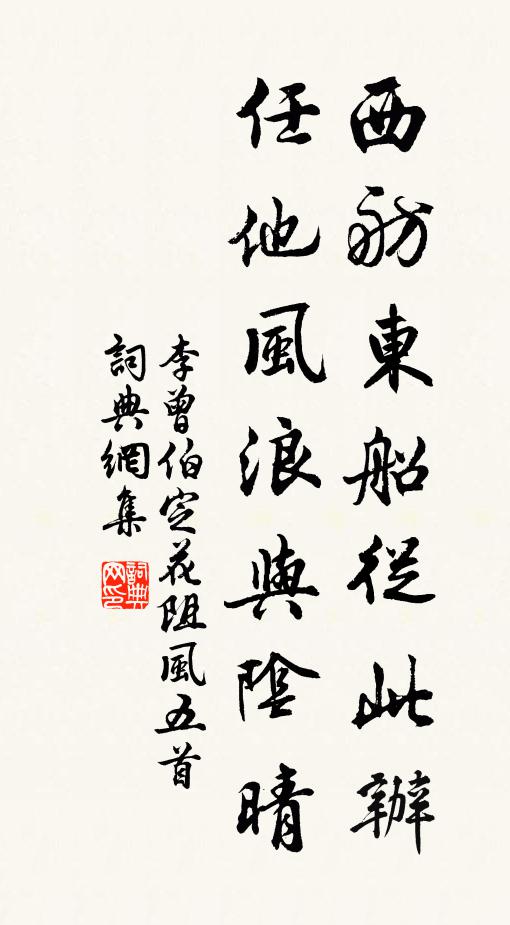 西舫東船從此辦
任他風浪與陰晴
李曾伯定花阻風五首
詞典網集
詞典网印